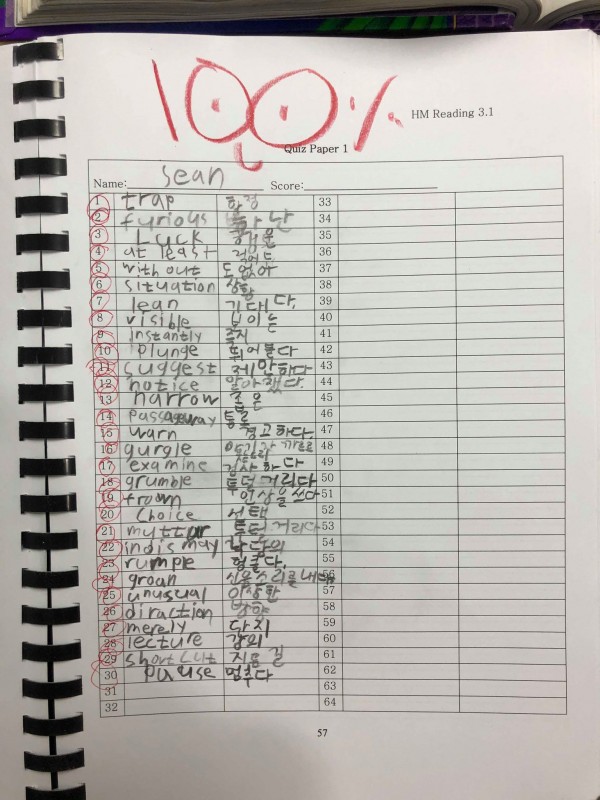 100%
HM Reading 3.1
Quiz Paper 1
Name: Sean Score:
1 trap 함정 33
2 furious 화난 34
3 Luck 행운 35
4 at least 적어도 36
5 without 도 없이 37
6 situation 상황 38
7 lean 기대다. 39
8 visible 보이는 40
9 instantly 즉시 41
10 plunge 뛰어들다 42
11 suggest 제안하다 43
12 notice 알아챘다. 44
13 narrow 좁은 45
14 passageway 통로 46
15 warn 경고하다. 47
16 gurgle 48
17 examine 검사하다 49
18 grumble 투덜거리다 50
19 frown 인상을 쓰다 51
20 choice 선택 52
21 muttar 투덜거리다 53
22 indismay 54
23 rumple 헝클다. 55
24 groan 신음소리를 내다 56
25 unusual 이상한 57
26 diraction 방향 58
27 merely 단지 59
28 lecture 강의 60
29 shortcut 지름길 61
30 pause 멈추다 62
31 63
32 64
57